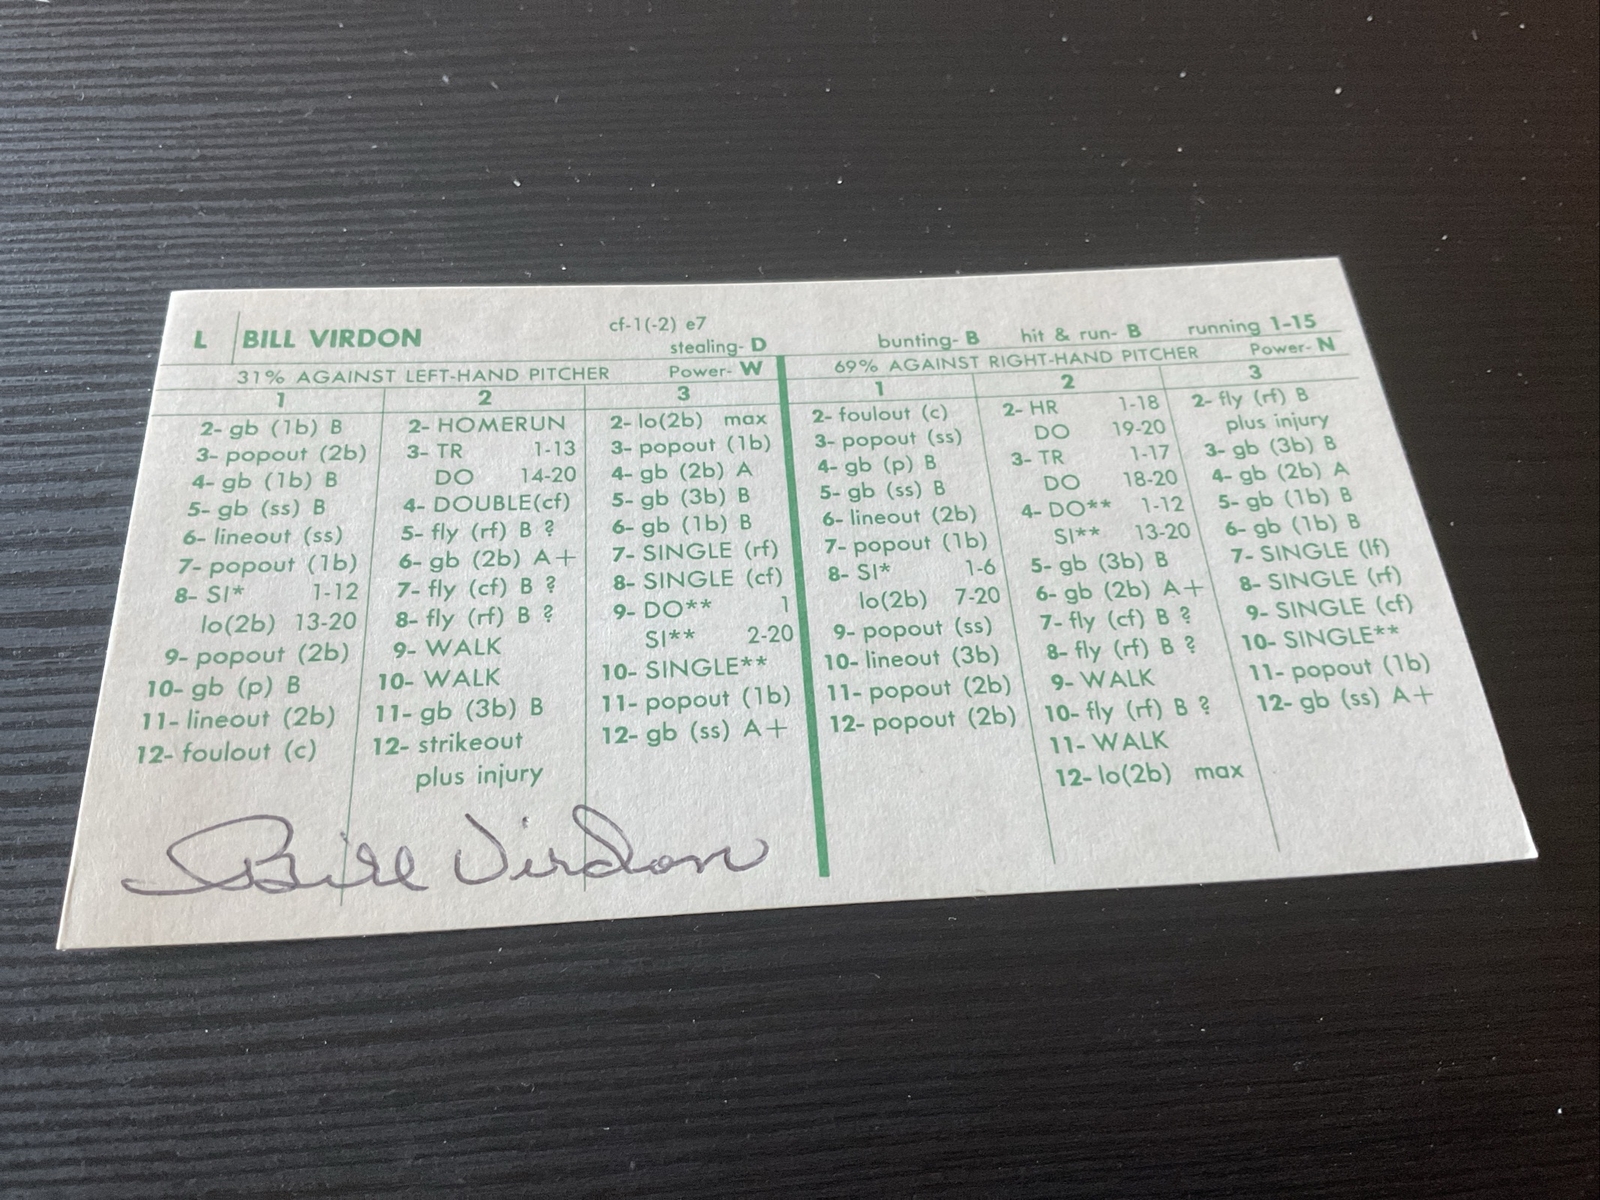 L BILL VIRDON cf-1(-2) e7 stealing- D bunting- B hit & run- B running 1-15
31% AGAINST LEFT-HAND PITCHER Power- W
1
2- gb (1b) B
3- popout (2b)
4- gb (1b) B
5- gb (ss) B
6- lineout (ss)
7- popout (1b)
8- SI* 1-12
lo(2b) 13-20
9- popout (2b)
10- gb (p) B
11- lineout (2b)
12- foulout (c)
2
2- HOMERUN
3- TR 1-13
DO 14-20
4- DOUBLE(cf)
5- fly (rf) B ?
6- gb (2b) A+
7- fly (cf) B ?
8- fly (rf) B ?
9- WALK
10- WALK
11- gb (3b) B
12- strikeout
plus injury
3
2- lo(2b) max
3- popout (1b)
4- gb (2b) A
5- gb (3b) B
6- gb (1b) B
7- SINGLE (rf)
8- SINGLE (cf)
9- DO** 1
SI** 2-20
10- SINGLE**
11- popout (1b)
12- gb (ss) A+
69% AGAINST RIGHT-HAND PITCHER Power- N
1
2- foulout (c)
3- popout (ss)
4- gb (p) B
5- gb (ss) B
6- lineout (2b)
7- popout (1b)
8- SI* 1-6
lo(2b) 7-20
9- popout (ss)
10- lineout (3b)
11- popout (2b)
12- popout (2b)
2
2- HR 1-18
DO 19-20
3- TR 1-17
DO 18-20
4- DO** 1-12
SI** 13-20
5- gb (3b) B
6- gb (2b) A+
7- fly (cf) B ?
8- fly (rf) B ?
9- WALK
10- fly (rf) B ?
11- WALK
12- lo(2b) max
3
2- fly (rf) B
plus injury
3- gb (3b) B
4- gb (2b) A
5- gb (1b) B
6- gb (1b) B
7- SINGLE (lf)
8- SINGLE (rf)
9- SINGLE (cf)
10- SINGLE**
11- popout (1b)
12- gb (ss) A+
Bill Virdon